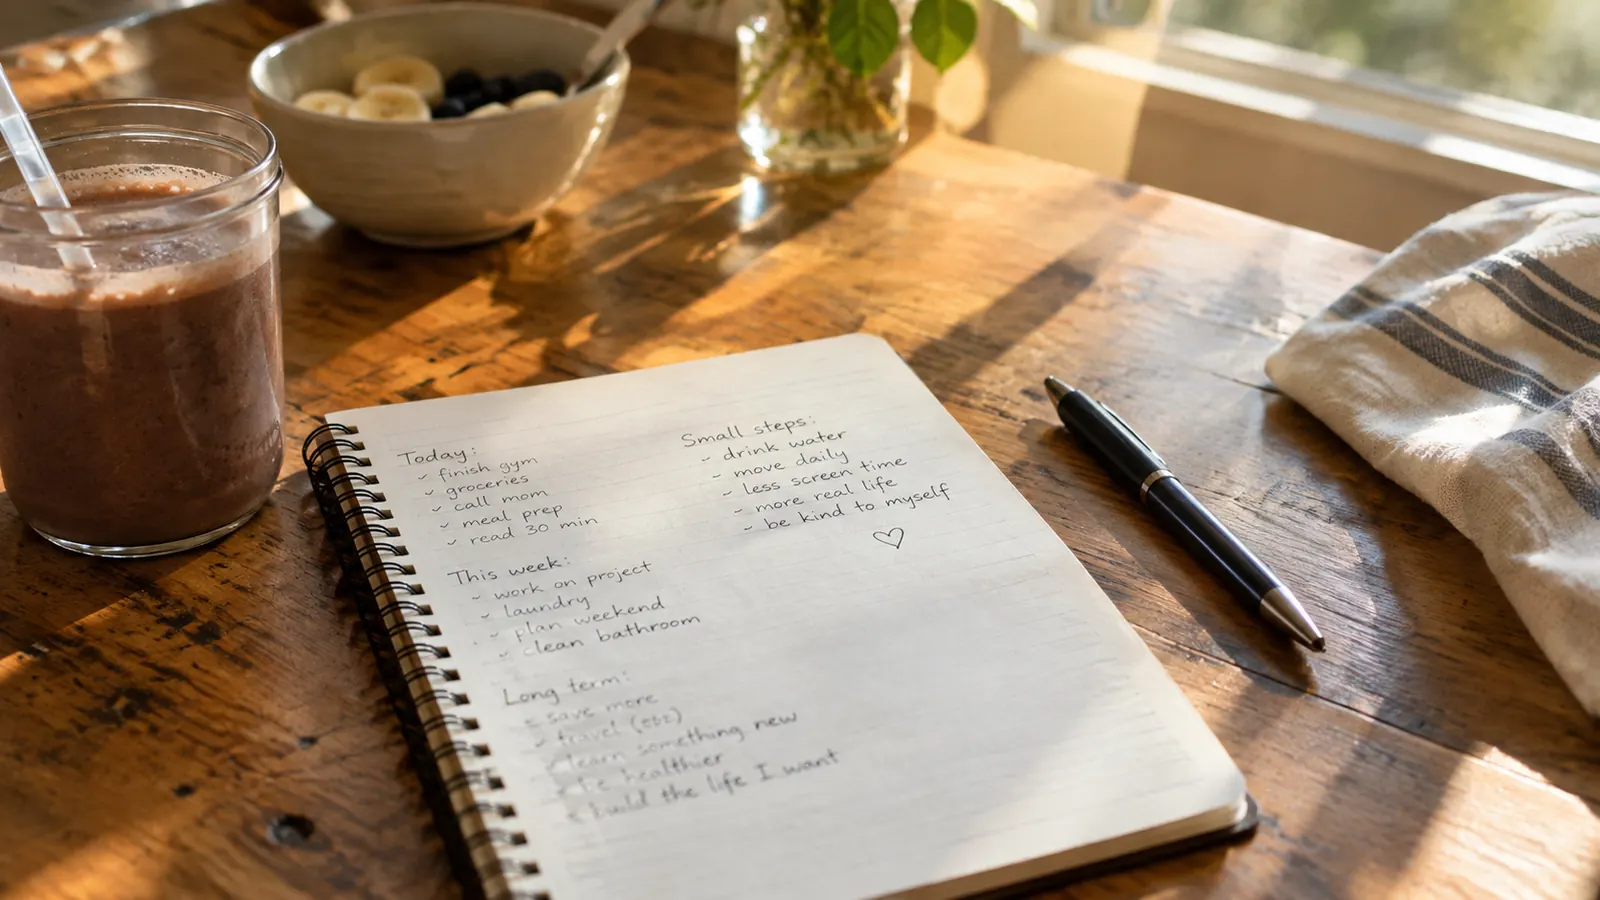 Today:
✓ finish gym
✓ groceries
✓ call mom
✓ meal prep
✓ read 30 min
This week:
✓ work on project
✓ laundry
✓ plan weekend
✓ clean bathroom
Long term:
save more
travel
learn something new
be healthier
build the life I want
Small steps:
✓ drink water
✓ move daily
✓ less screen time
✓ more real life
✓ be kind to myself
♡